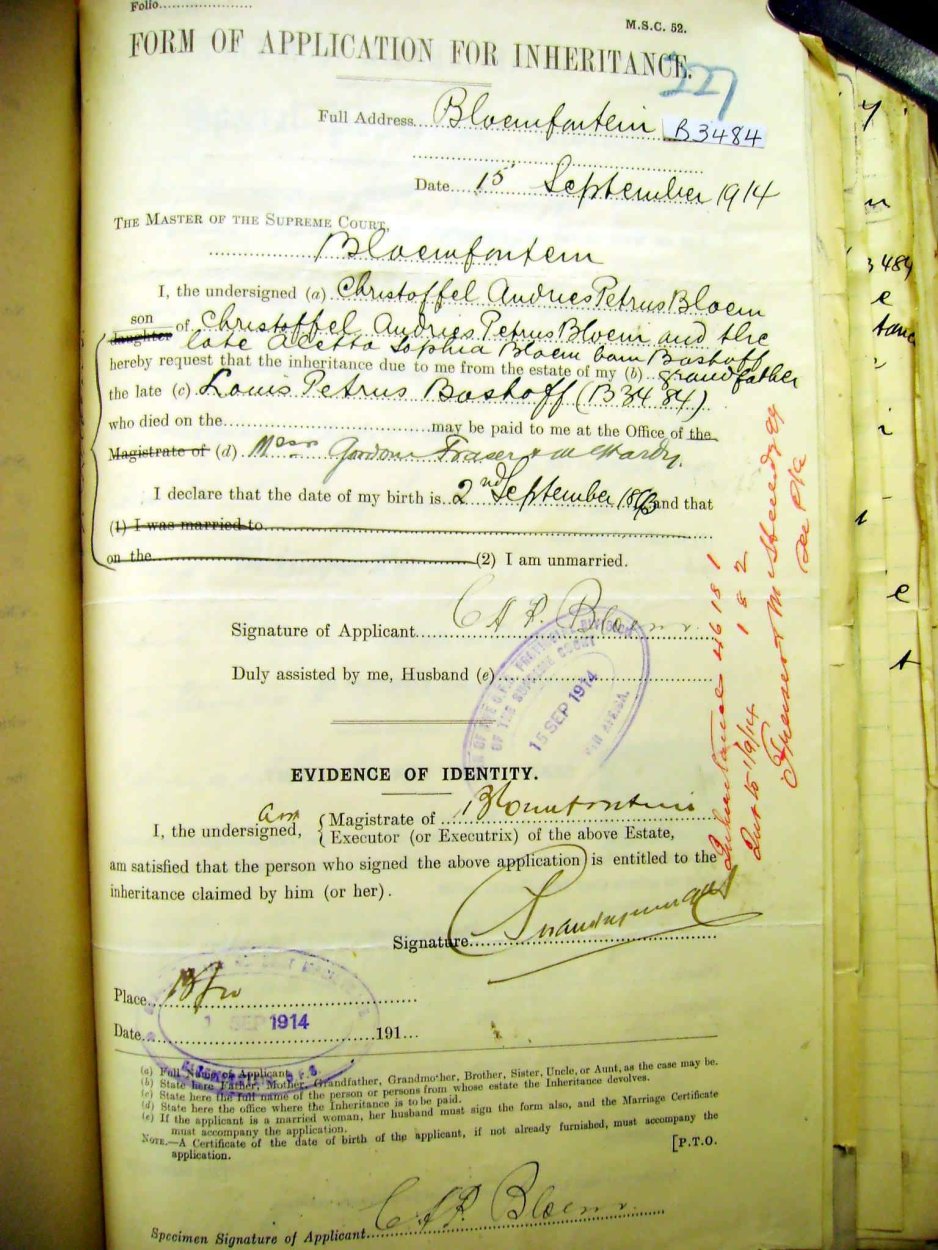 Folio....................
M.S.C. 52.
FORM OF APPLICATION FOR INHERITANCE.
227
Full Address Bloemfontein B3484
Date 15 September 1914
THE MASTER OF THE SUPREME COURT,
Bloemfontein
I, the undersigned (a) Christoffel Andries Petrus Bloem
son
daughter of Christoffel Andries Petrus Bloem and the
late Aletta Sophia Bloem born Boshoff
hereby request that the inheritance due to me from the estate of my (b) grandfather
the late (c) Louis Petrus Boshoff (B3484)
who died on the....................may be paid to me at the Office of the
Magistrate of (d) Messrs Gordon Fraser & McHardy.
I declare that the date of my birth is 2nd September 1893 and that
(1) I was married to
on the (2) I am unmarried.
Signature of Applicant C A P. Bloem
Duly assisted by me, Husband (e)
OF THE SUPREME COURT
15 SEP 1914
EVIDENCE OF IDENTITY.
I, the undersigned, Asst { Magistrate of Bloemfontein
{ Executor (or Executrix) of the above Estate,
am satisfied that the person who signed the above application is entitled to the
inheritance claimed by him (or her).
Signature
Place Bfn
Date 191...
SEP 1914
(a) Full Name of Applicant.
(b) State here Father, Mother, Grandfather, Grandmother, Brother, Sister, Uncle, or Aunt, as the case may be.
(c) State here the full name of the person or persons from whose estate the Inheritance devolves.
(d) State here the office where the Inheritance is to be paid.
(e) If the applicant is a married woman, her husband must sign the form also, and the Marriage Certificate
must accompany the application.
NOTE.—A Certificate of the date of birth of the applicant, if not already furnished, must accompany the
application.
[P.T.O.
Specimen Signature of Applicant C A P. Bloem
Inheritance 46 18 1
Int to 1/9/14 1 8 2